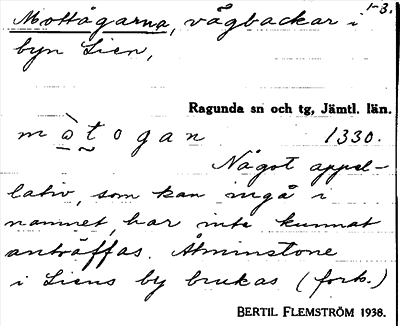 1-3.
Mottågarna, vågbackar i
byn Lien,
Ragunda sn och tg, Jämtl. län.
m ò t o g a n 1330.
Något appel-
lativ, som kan ingå i
namnet, har inte kunnat
anträffas. Åtminstone
i Liens by brukas (forts.)
BERTIL FLEMSTRÖM 1938.